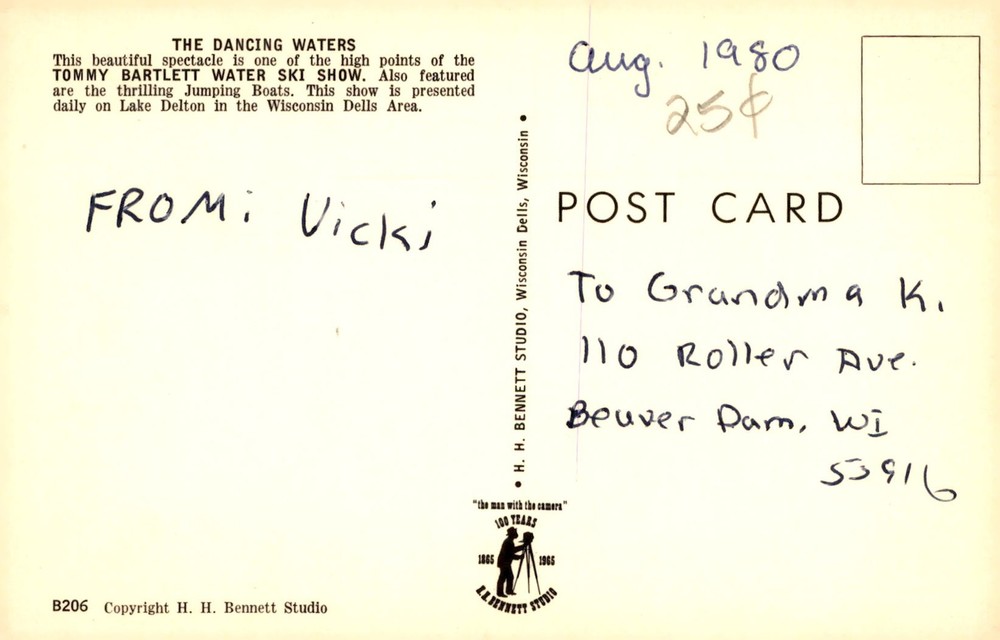 THE DANCING WATERS
This beautiful spectacle is one of the high points of the
TOMMY BARTLETT WATER SKI SHOW. Also featured
are the thrilling Jumping Boats. This show is presented
daily on Lake Delton in the Wisconsin Dells Area.
FROM: Vicki
B206 Copyright H. H. Bennett Studio
• H. H. BENNETT STUDIO, Wisconsin Dells, Wisconsin •
"the man with the camera"
100 YEARS
1865 1965
H.H. BENNETT STUDIO
Aug. 1980
25¢
POST CARD
To Grandma K.
110 Roller Ave.
Beuver Dam, WI
53916